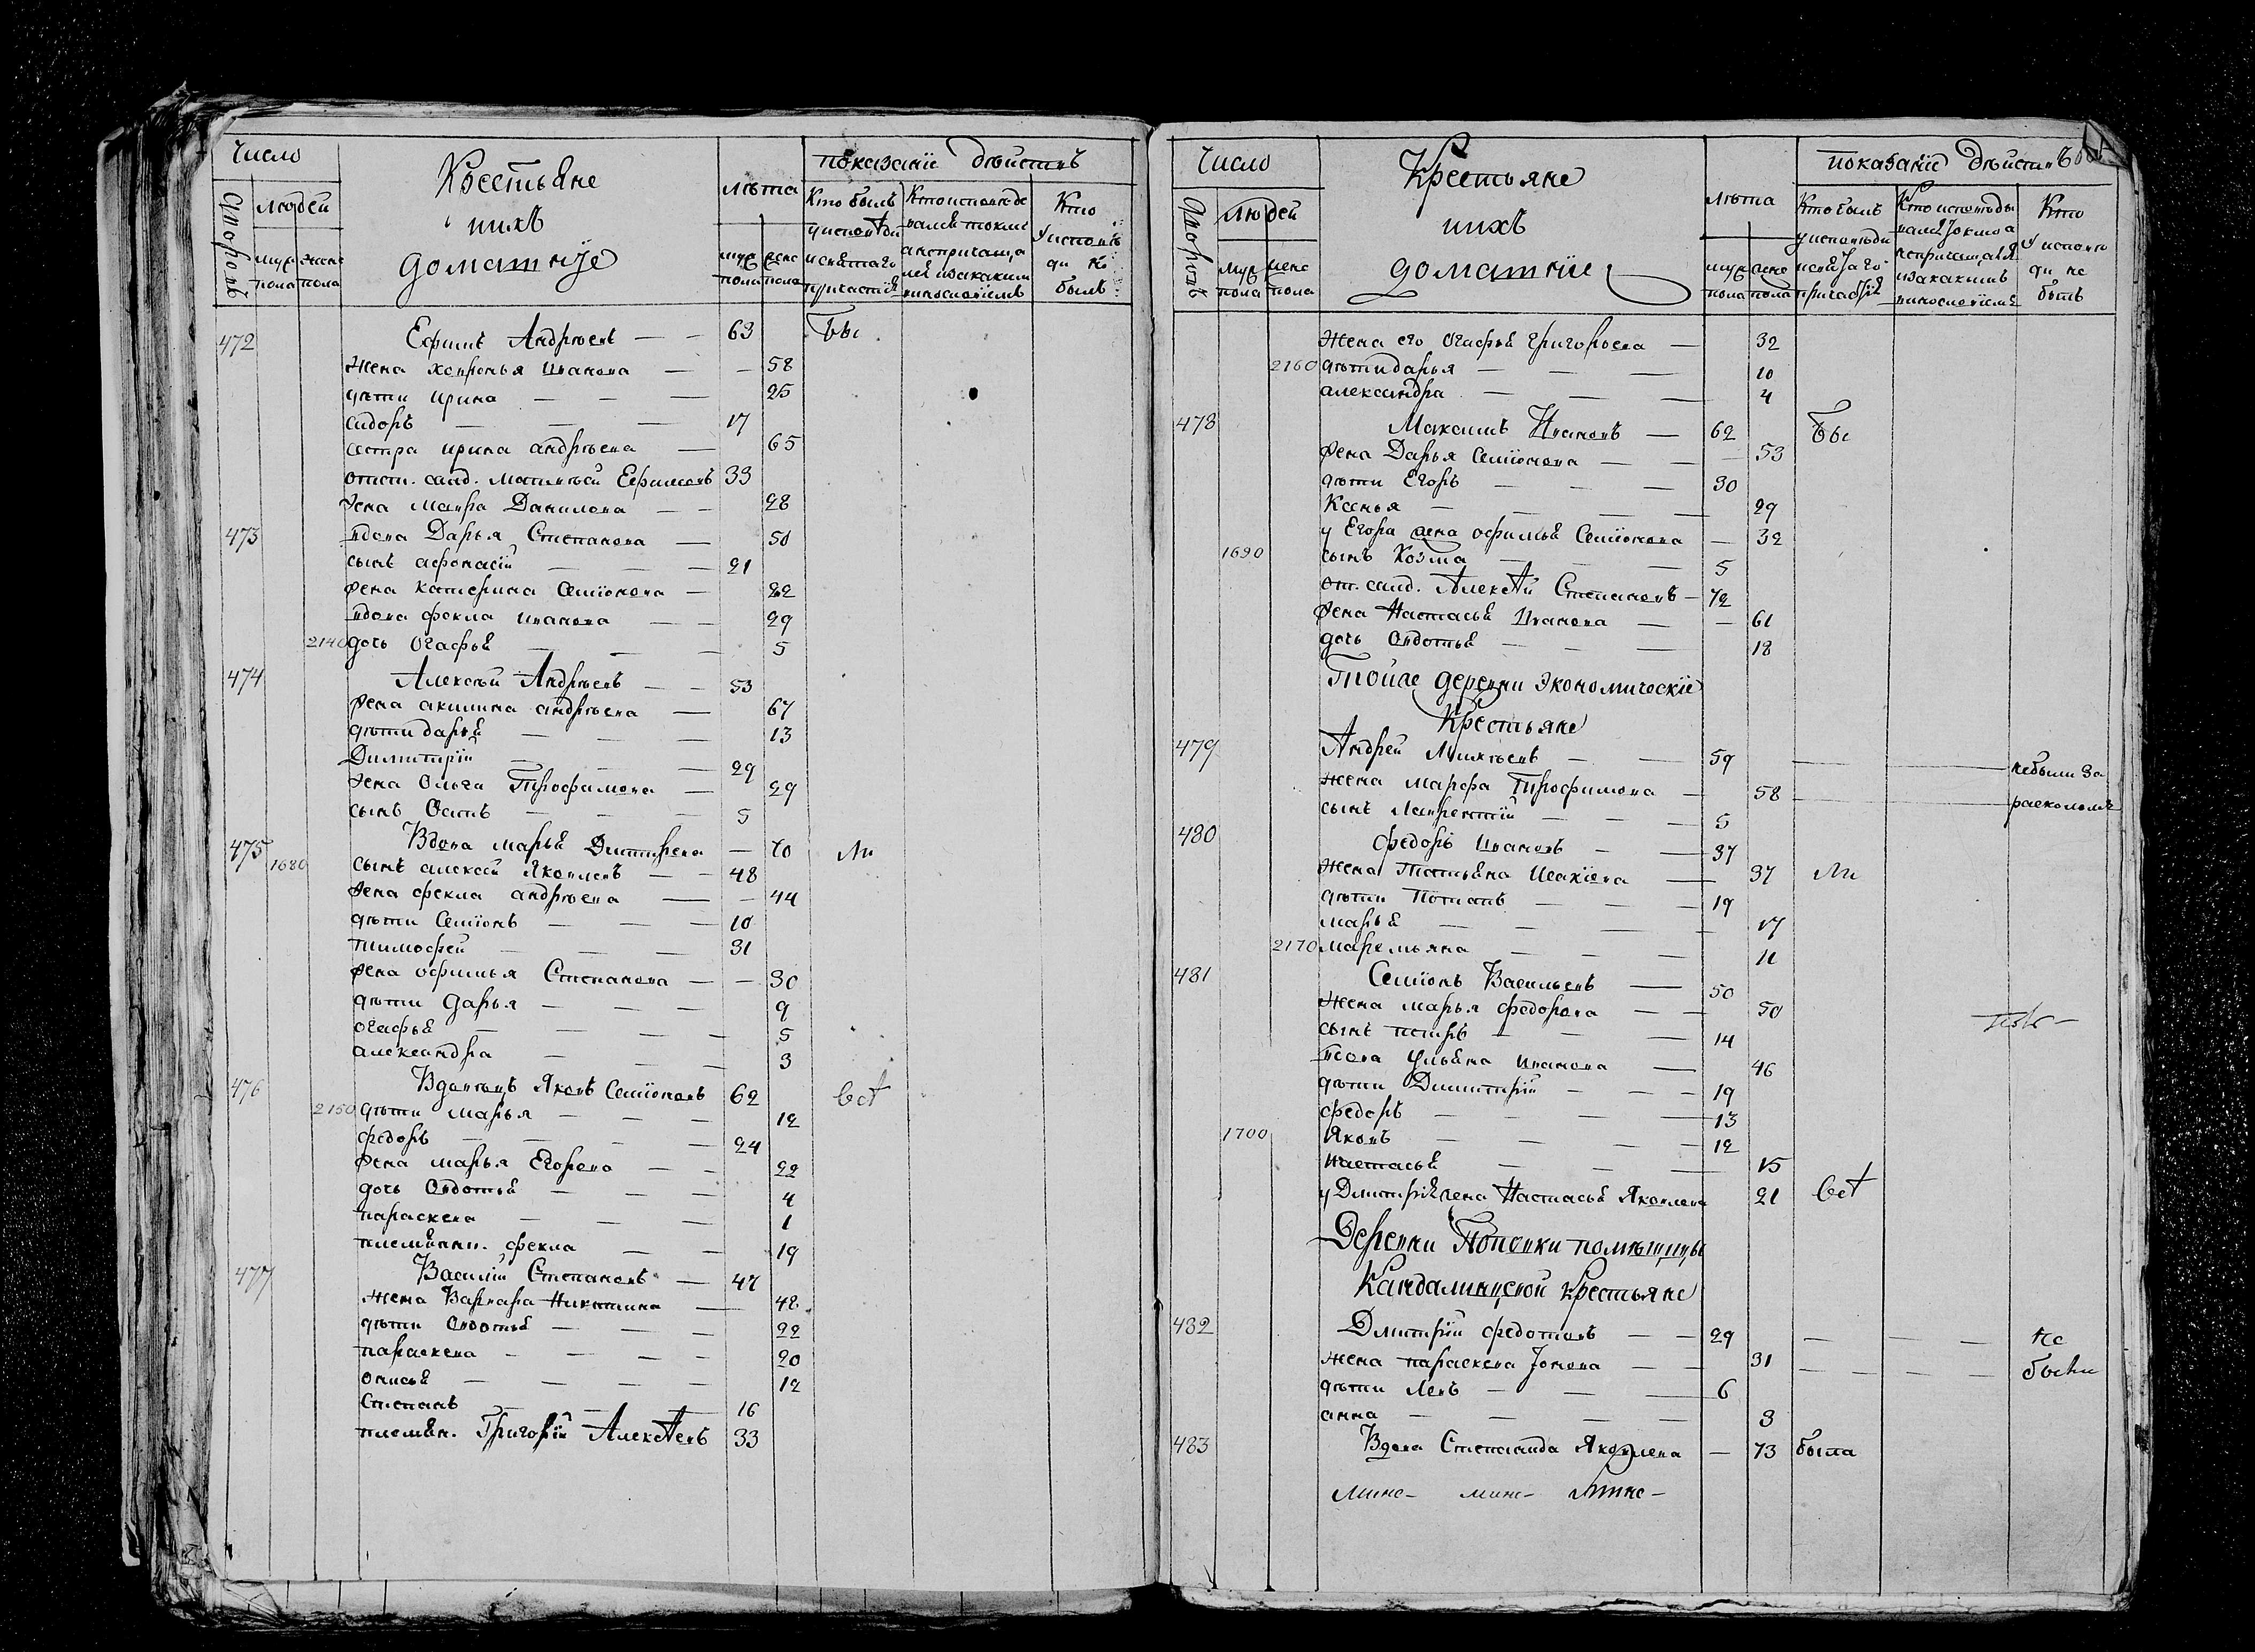 Число
Крестьяне
ихъ
домашнiе
лѣта
показанiе дѣйствъ
дворовъ
людей
муж пола
жен пола
муж пола
жен пола
Кто былъ
у исповѣди
и святаго
причастiя
Кто исповѣдо
вался токмо
а не причаща
лся и за какимъ
винословiемъ
Кто
у исповѣ
ди не
былъ
472 Ефимъ Андрѣевъ — — 63 бы
жена Хевронья Иванова — — 58
дѣти Ирина — — — 25
Сидоръ — — — 17
сестра Ирина Андрѣева — 65
отст. салд. Матвѣей Ефимовъ 33
жена Мавра Данилова — — 28
473 вдова Дарья Степанова — 50
сынъ Афонасiй — — — 21
жена Катерина Семiонова — 22
вдова Фекла Иванова — — 29
2140 дочь Огафья — — — 5
474 Алексѣй Андрѣевъ — — 53
жена Акилина Андрѣева — 67
дѣти Дарья — — 13
Димитрiй — — — 29
жена Ольга Трофимова — 29
сынъ Осипъ — — — 5
475 Вдова Марья Дмитрева — 70 ли
1680 сынъ Алексей Яковлевъ — — 48
жена Фекла Андрѣева — — 44
дѣти Семiонъ — — — 10
Тимофей — — — 31
жена Офимья Степанова — — 30
дѣти Дарья — — — 9
Огафья — — — — 5
Александра — — — 3
476 Вдовецъ Яковъ Семiоновъ 62 всѣ
2150 дѣти Марья — — — 12
Федоръ — — — — 24
жена Марья Егорева — — 22
дочь Овдотья — — — 4
Параскева — — — 1
племянн. Фекла — — 19
477 Василiй Степановъ — 47
жена Варвара Никитина — 48
дѣти Овдотья — — — 22
Параскева — — — — 20
Онисья — — — — 12
Степанъ — — — 16
племян. Григорiй Алексѣевъ 33
Число
Крестьяне
ихъ
домашнiе
лѣта
показанiе дѣйствъ
дворовъ
людей
муж пола
жен пола
муж пола
жен пола
Кто былъ
у исповѣди
и святаго
причастiя
Кто исповѣды
вался токмо а
не причащался
и за какимъ
винословiемъ
Кто
у исповѣ
ди не
былъ
жена его Огафья Григорьева — 32
2160 дѣти Дарья — — — 10
Александра — — — 4
478 Максимъ Ивановъ — 62 бы
жена Дарья Семiонова — — 53
дѣти Егоръ — — — 30
Ксенья — — — — 29
у Егора жена Офимья Семiонова — 32
1690 сынъ Козма — — — 5
от. салд. Алексѣй Степановъ — 72
жена Настасья Иванова — — 61
дочь Овдотья — — — 18
Тойже деревни Экономическiе
Крестьяне
479 Андрей Михѣевъ — — 59 — — небыли за
жена Марфа Трофимова — 58 — — расколомъ
сынъ Лаврентiй — — — 5
480 Федоръ Ивановъ — — 37
жена Татьяна Исакiева — 37 ли
дѣти Потапъ — — — 19
Марья — — — — 17
2170 Маремьяна — — — 11
481 Семiонъ Васильевъ — 50
жена Марья Федорова — — 50
сынъ Петръ — — — 14
вдова Ульяна Иванова — 46
дѣти Димитрiй — — — 19
Федоръ — — — 13
1700 Яковъ — — — — 12
Настасья — — — 15
у Димитрiя жена Настасья Яковлева 21 всѣ
Деревни Поповки помѣщицы
Кандалинцевой Крестьяне
482 Дмитрiй Федотовъ — — 29 — — — не
жена Параскева — — 31 — — — — были
дѣти Левъ — — — 6
Анна — — — — 3
483 Вдова Степанида Яковлева — 73 была